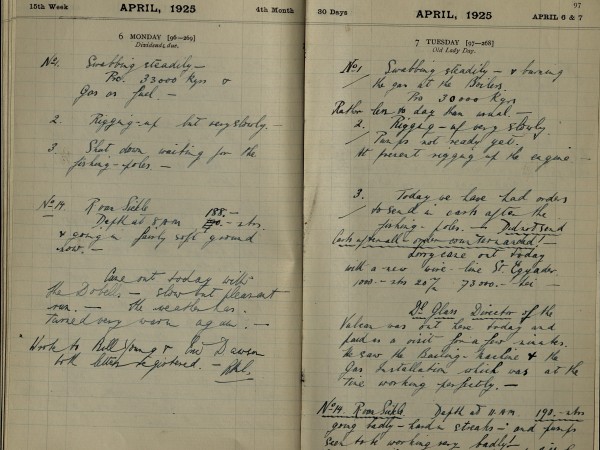 15th Week
APRIL, 1925
4th Month
6 MONDAY [96—269]
Dividends due.
No 1. Swabbing steadily —
Pro. 33000 Kgrs &
Gas as fuel. —
2. Rigging-up but very slowly. —
3. Shut down waiting for the
fishing-poles. —
No 14. Roan Sickle 188.—
Depth at 8 A.M. mtrs.
& going in fairly soft ground
now. —
Came out today with
the Dobell. — slow but pleasant
run. — the weather has
turned very warm again. —
Wrote to Bill Young & Dawson
both letters registered. —
30 Days
APRIL, 1925
97
APRIL 6 & 7
7 TUESDAY [97—268]
Old Lady Day.
No 1 Swabbing steadily — & burning
the gas at the Boilers.
Pro 30000 Kgrs
Rather less to day than usual. —
2. Rigging-up very slowly.
Pumps not ready yet. —
At present rigging up the engine —
3. Today we have had orders
to send in casts after the
fishing-poles. — Did not send
Casts after all — orders countermanded! —
Lorry came out today
with a new wire-line St Egydier
1000.— mtrs 73000.— Lei —
Dr Glass Director of the
Vulcan was out here today and
paid us a visit for a few minutes.
He saw the Bailing-Machine & the
Gas Installation which was at the
time working perfectly. —
No 14. Roan Sickle. Depth at 11 A.M. 190.— mtrs
going badly — hard in streaks — and pumps
seem to be working very badly! —